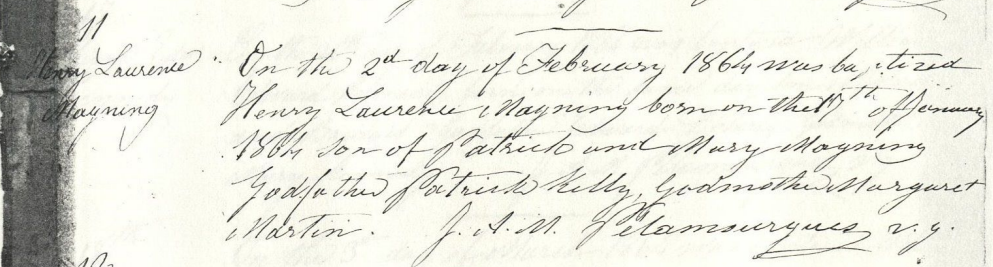 11
Henry Laurence
Mayning
On the 2d day of February 1864 was baptized
Henry Laurence Mayning born on the 17th of January
1864 son of Patrick and Mary Mayning
Godfather Patrick Kelly, Godmother Margaret
Martin. J. A. M. Pelamourgues v. g.
12